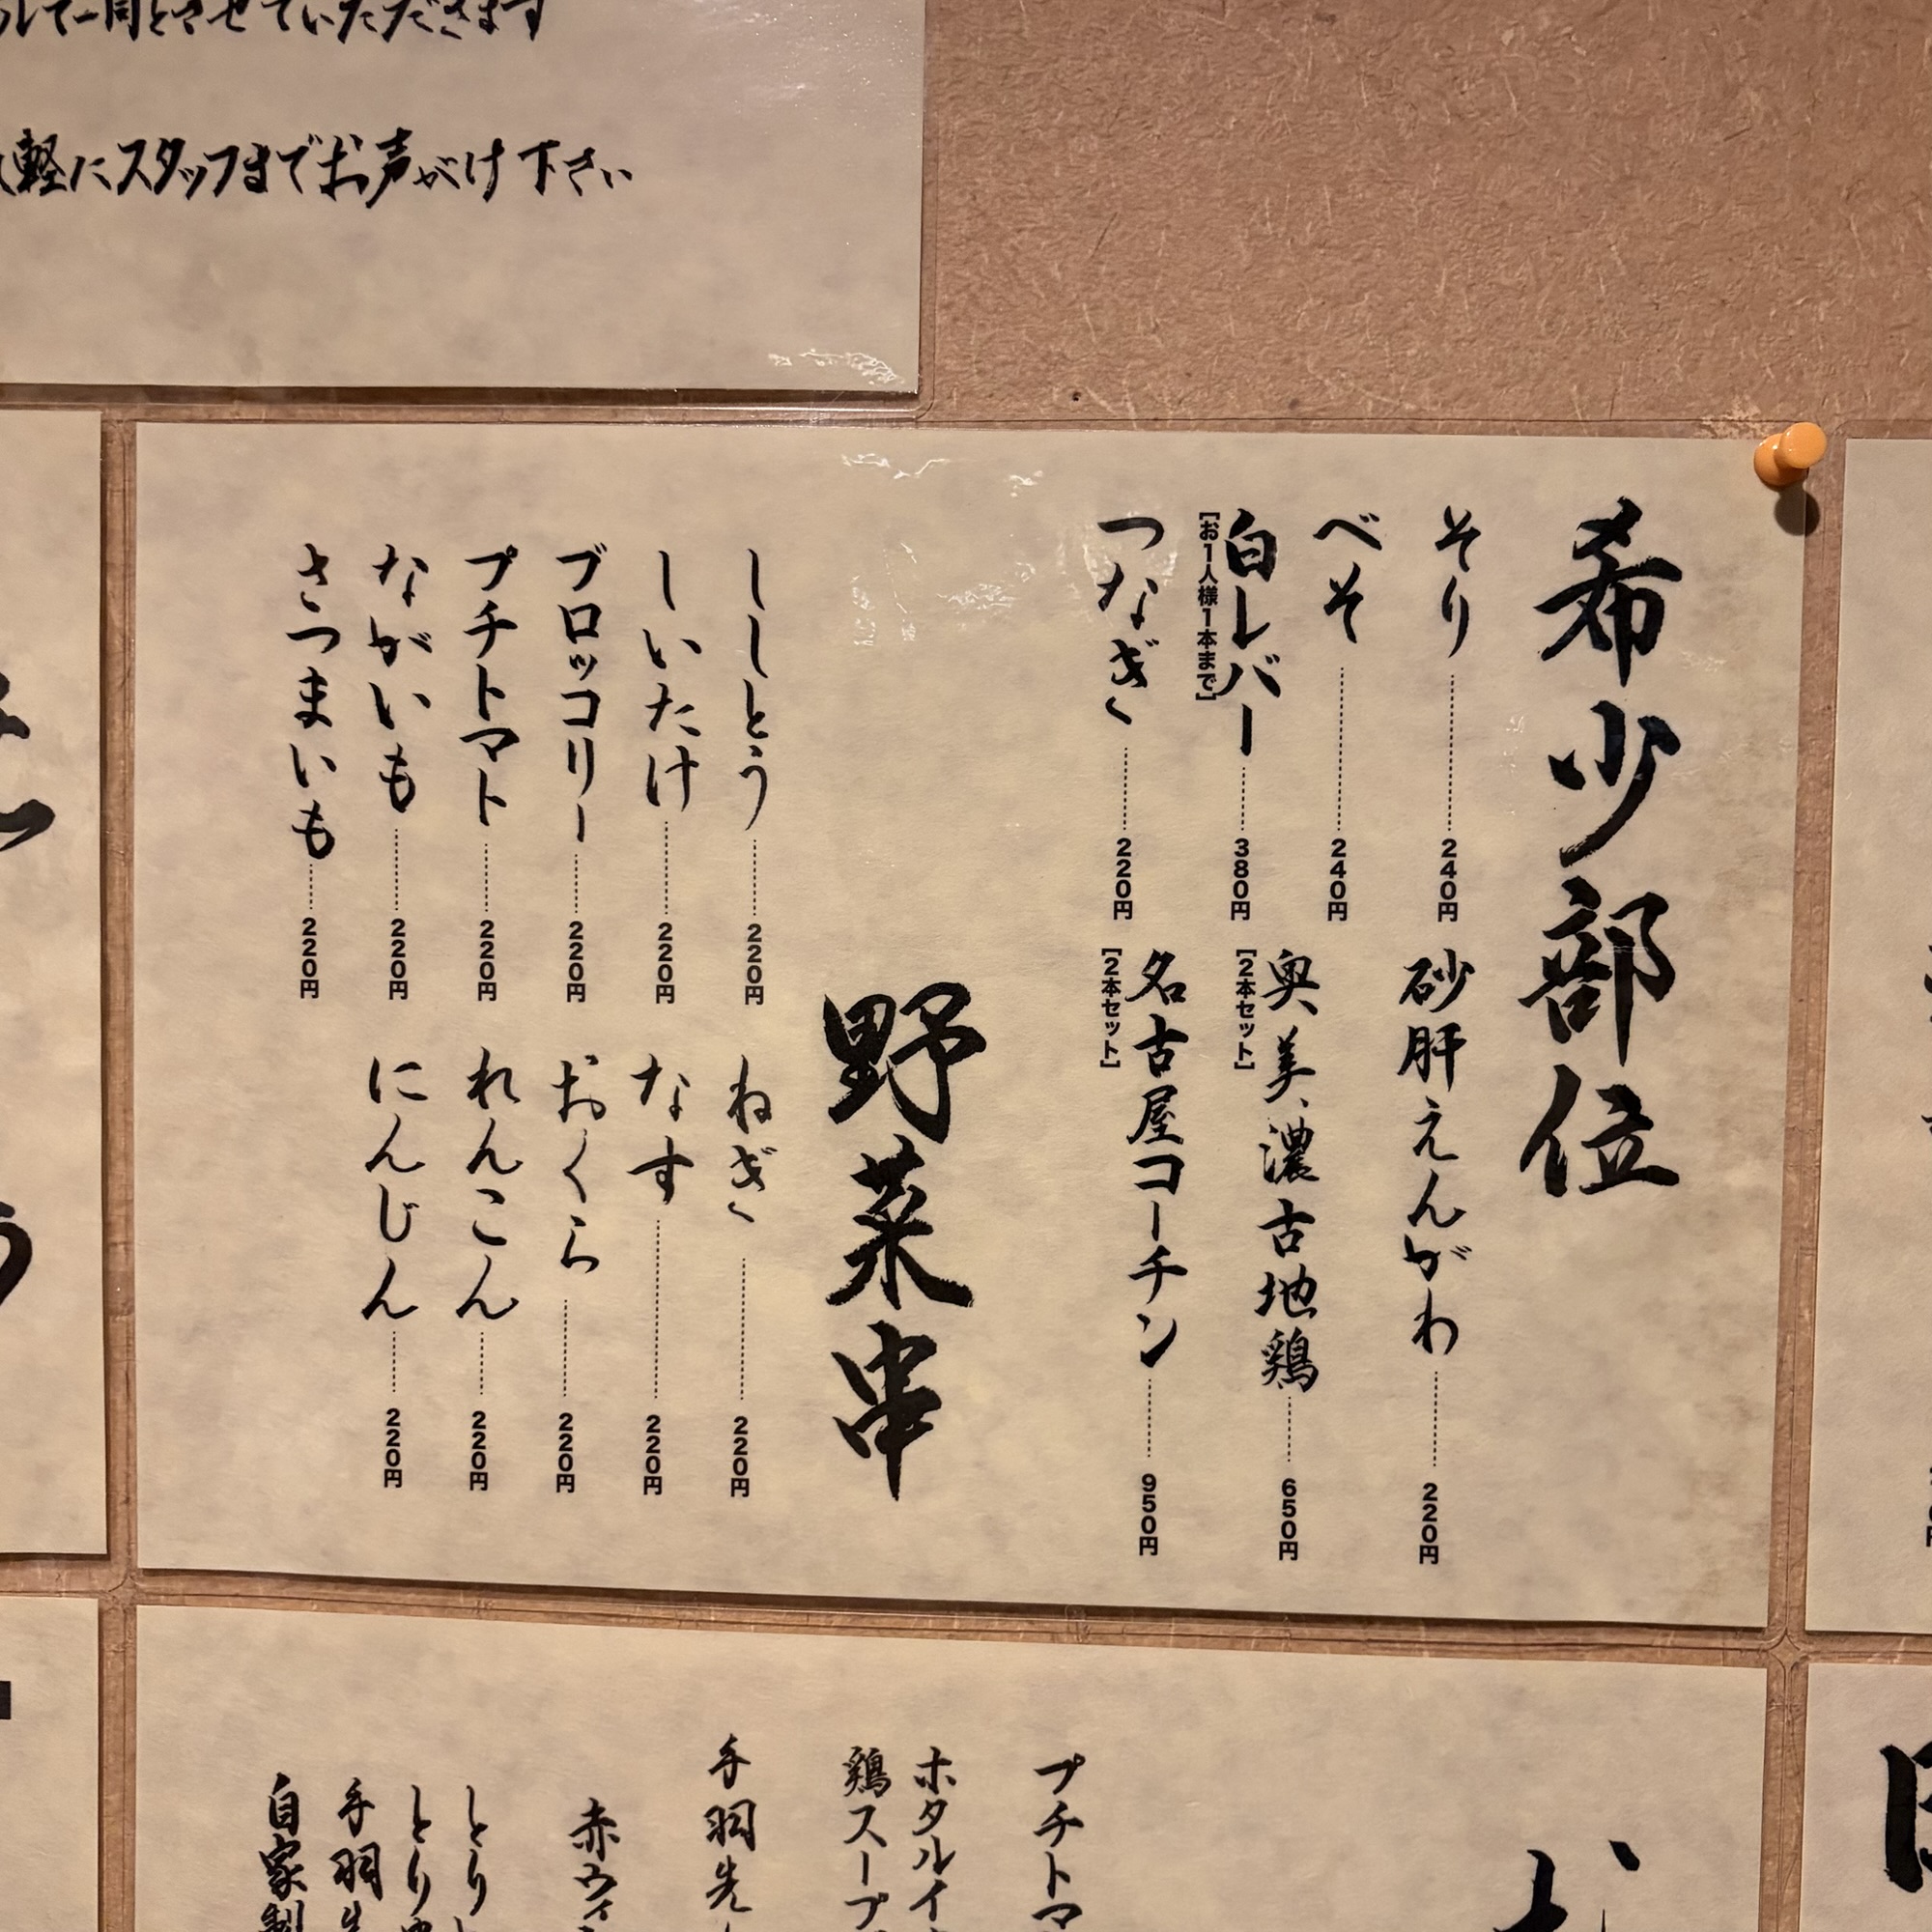 させていただきます
軽にスタッフまでお声がけ下さい
希少部位
そり 240円
べそ 240円
白レバー 380円
[お1人様1本まで]
つなぎ 220円
砂肝えんがわ 220円
奥美濃古地鶏 650円
[2本セット]
名古屋コーチン 950円
[2本セット]
野菜串
ししとう 220円
しいたけ 220円
ブロッコリー 220円
プチトマト 220円
ながいも 220円
さつまいも 220円
ねぎ 220円
なす 220円
おくら 220円
れんこん 220円
にんじん 220円
プチトマ
ホタルイ
鶏スープ
手羽先
赤ウィ
とり
とり
手羽先
自家製